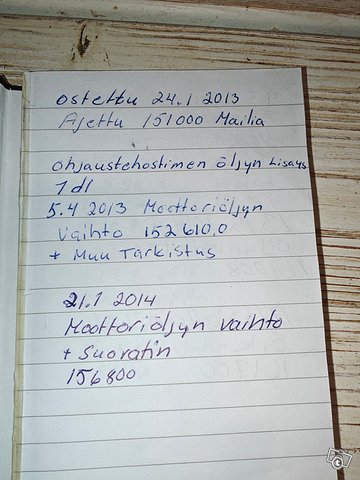 ostettu 24.1 2013
Ajettu 151000 Mailia
ohjaustehostimen öljyn Lisäys
1 dl
5.4 2013 Moottoriöljyn
Vaihto 152610,0
+ Muu Tarkistus
21.1 2014
Moottoriöljyn vaihto
+ Suoratin
156800